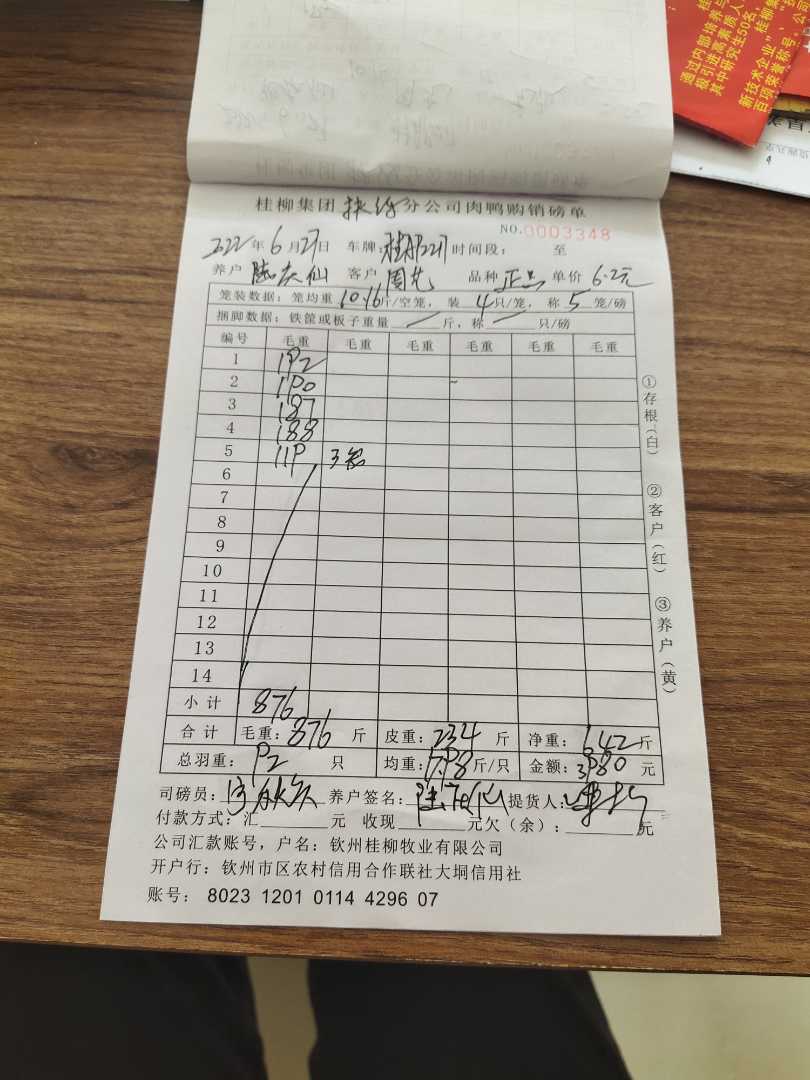 通过内部培养与
极引进高素质人
其中研究生50名,
桂柳集
新技术企业”、
百项荣誉称号,公司
桂柳集团 分公司肉鸭购销磅单
NO.0003348
2022年6月27日 车牌: 时间段: 至
养户 客户 周 品种 正品 单价 6.2元
笼装数据: 笼均重 10.16斤/空笼, 装 4只/笼, 称 5 笼/磅
捆脚数据: 铁筐或板子重量 斤, 称 只/磅
编号 毛重 毛重 毛重 毛重 毛重 毛重
1 192
2 190
3 187
4 188
5 119 3笼
6
7
8
9
10
11
12
13
14
小计 876
合计 毛重: 876 斤 皮重: 234 斤 净重: 642斤
总羽重: 92 只 均重: 6.98斤/只 金额: 3980 元
司磅员: 养户签名: 提货人:
付款方式: 汇 元 收现 元欠(余): 元
公司汇款账号, 户名: 钦州桂柳牧业有限公司
开户行: 钦州市区农村信用合作联社大垌信用社
账号: 8023 1201 0114 4296 07
①存根(白)
②客户(红)
③养户(黄)